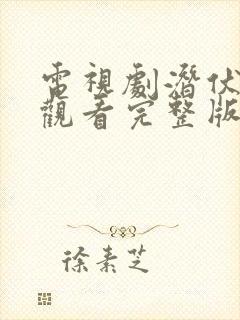 電視劇潛伏
觀看完整版
徐素芝